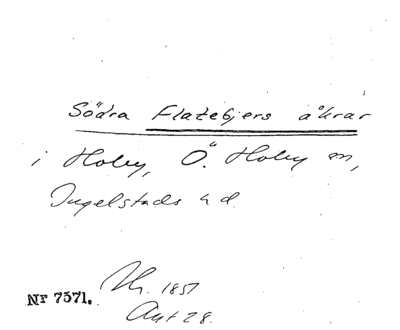 Södra Flatebjers åkrar
i Hoby, Ö. Hoby sn,
Ingelstads hd.
Nr 7571. 1851
Akt 28.